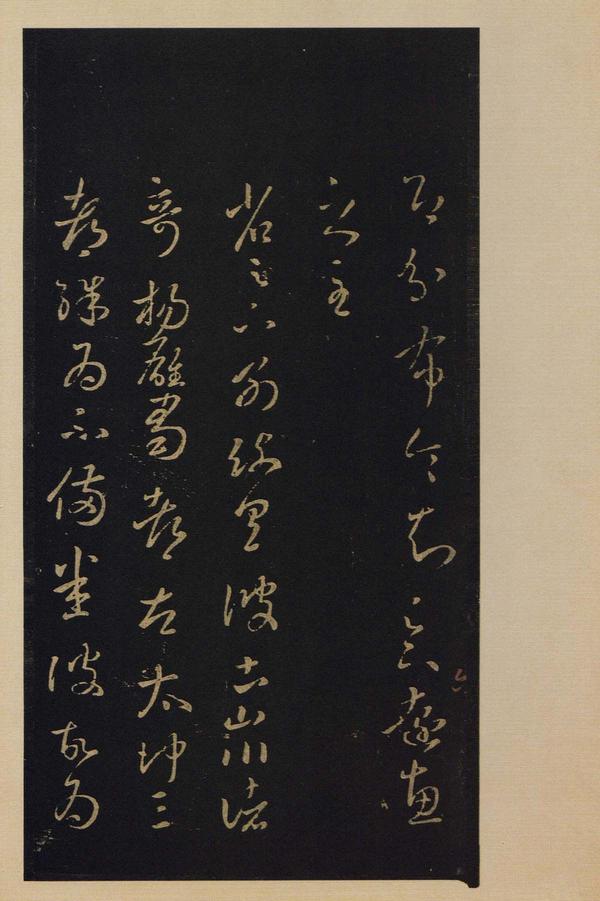 即分布令知足下遠惠
之至
省足下別疏具彼土山川諸
奇楊雄蜀都左太沖三
都殊為不備悉彼故為